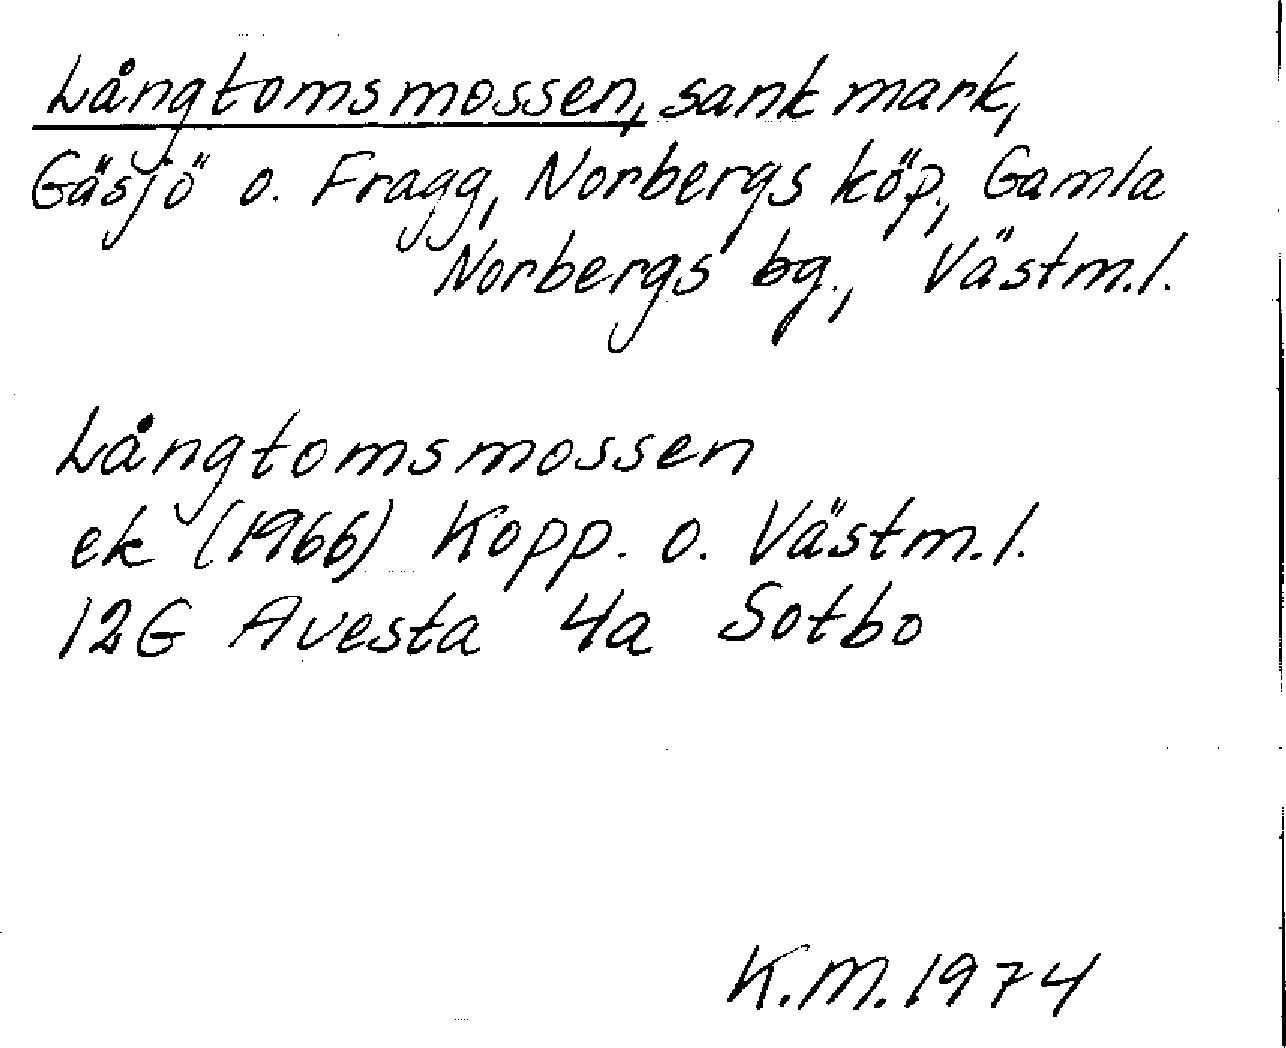 Långtomsmossen, sank mark,
Gäsjö o. Fragg, Norbergs köp., Gamla
Norbergs bg., Västm.l.
Långtomsmossen
ek (1966) Kopp. o. Västm.l.
12G Avesta 4a Sotbo
K.M. 1974